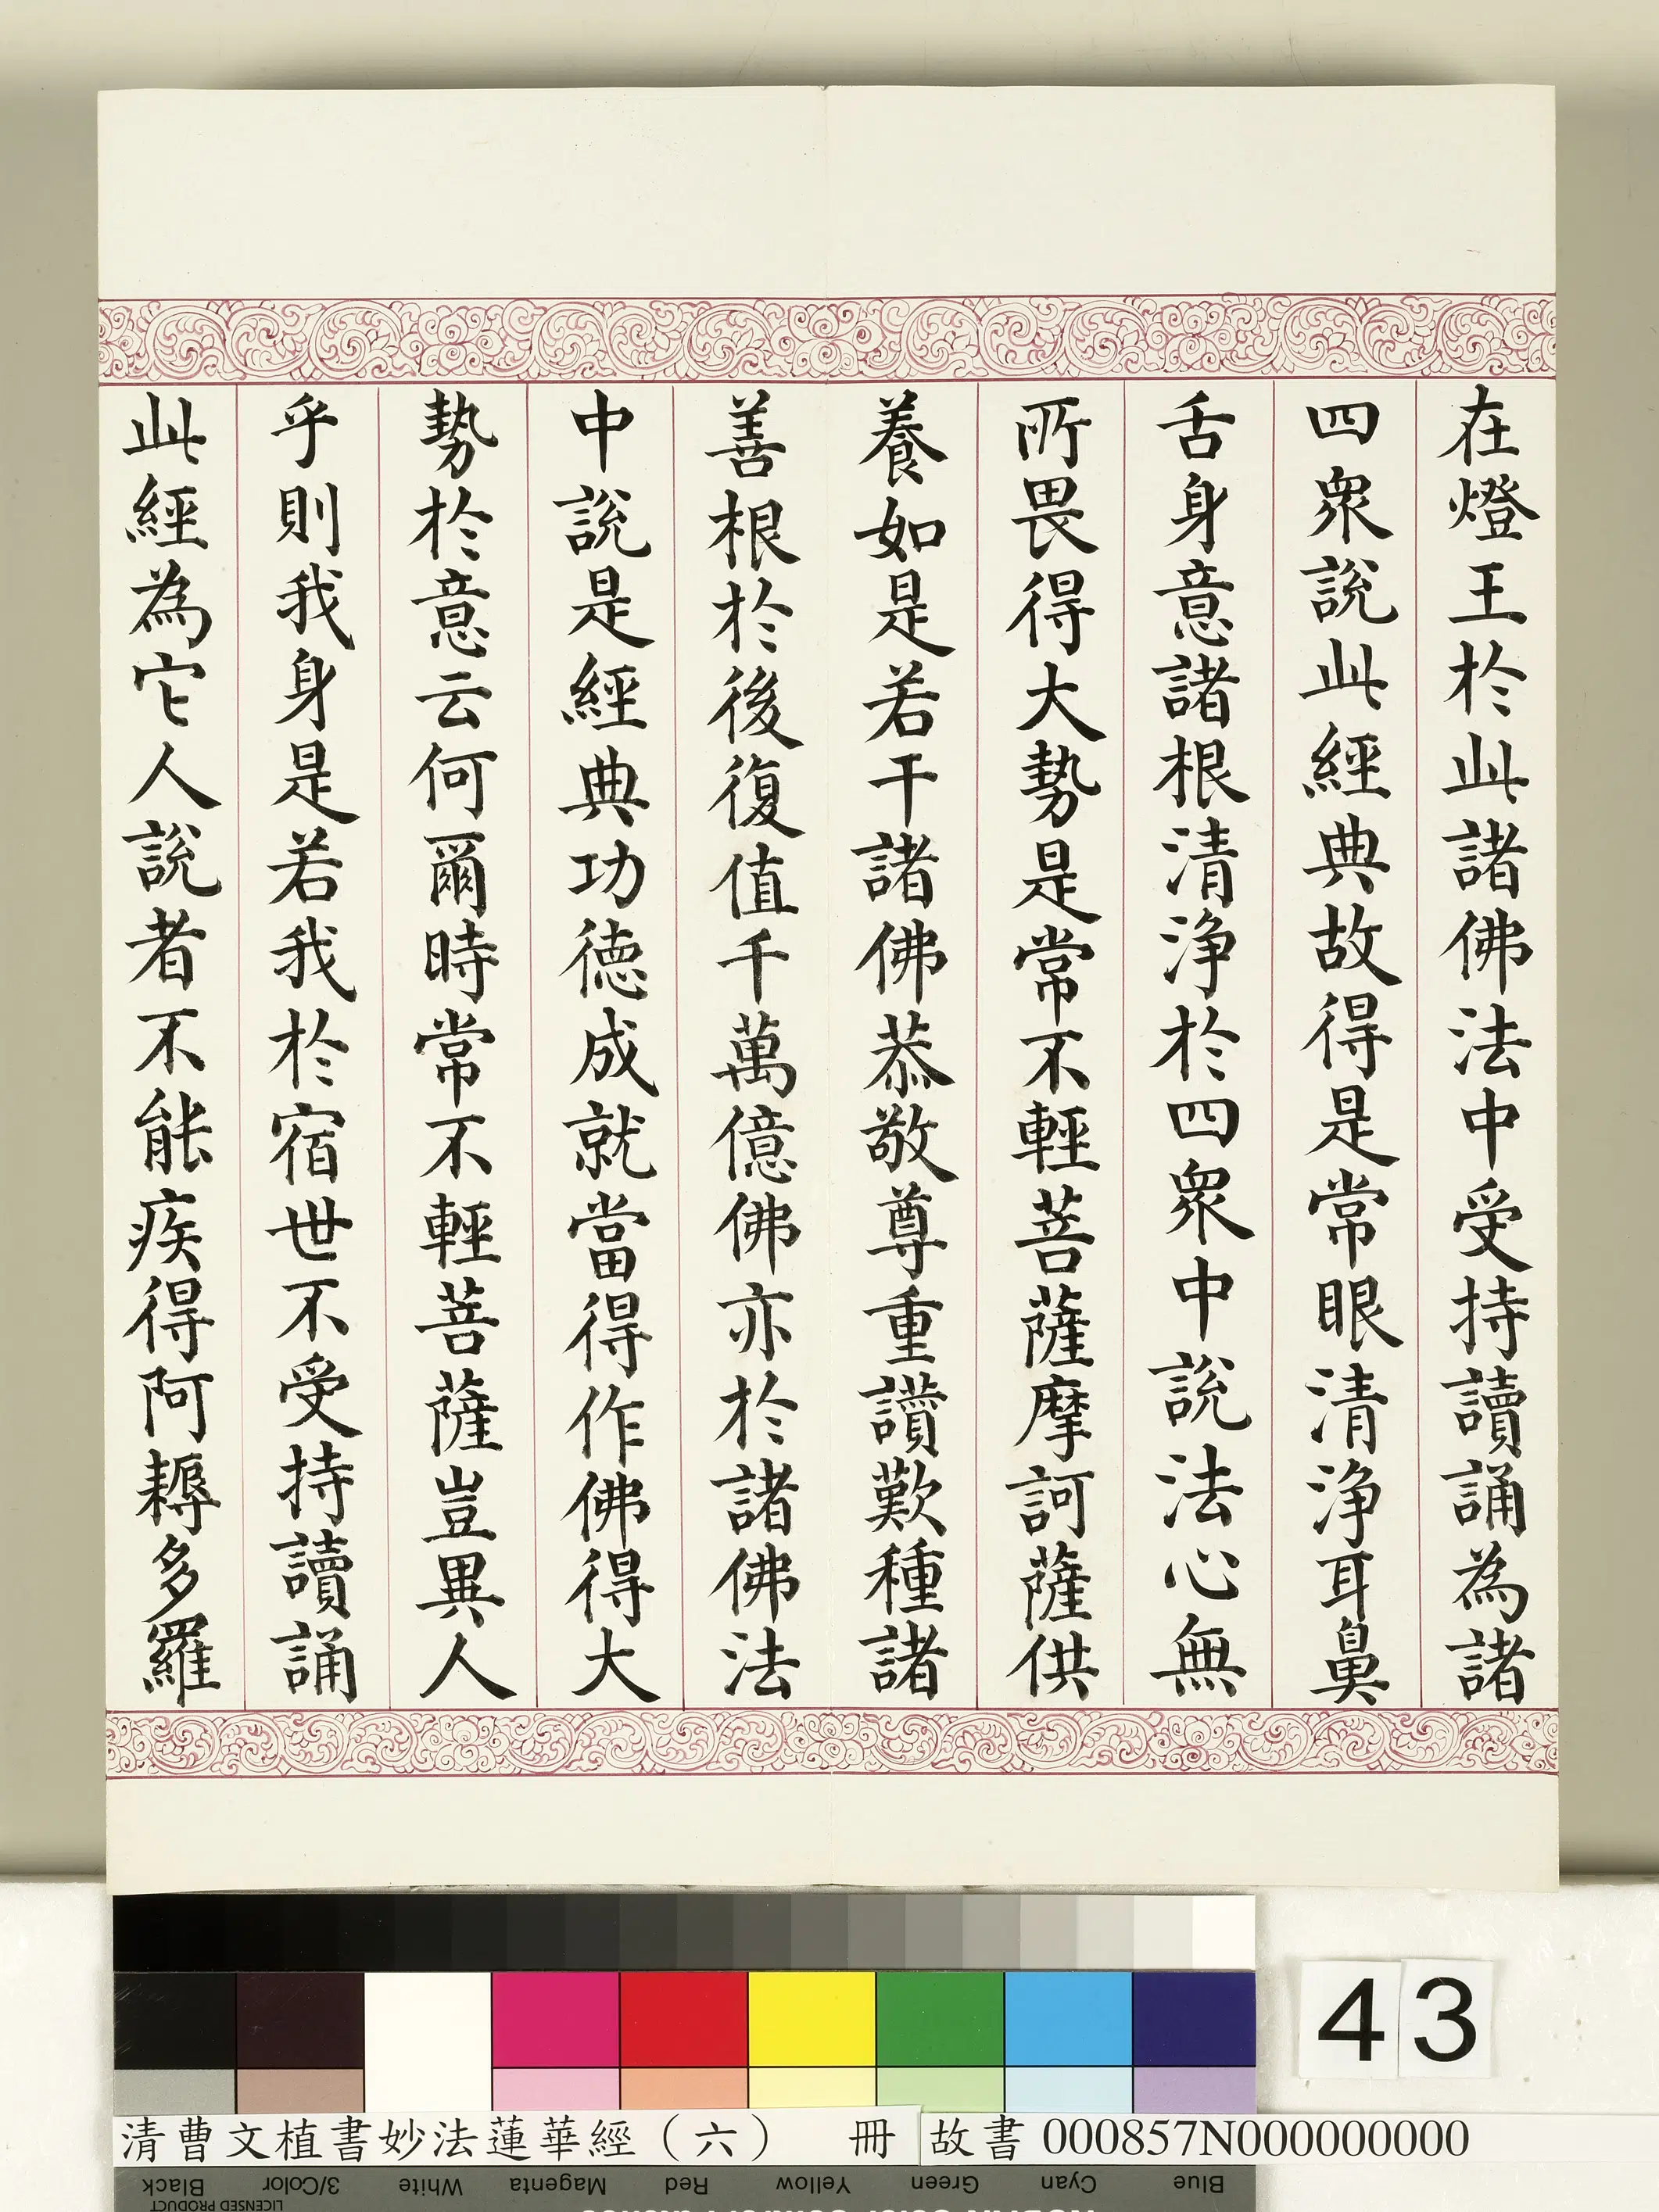 在燈王於此諸佛法中受持讀誦為諸
四衆說此經典故得是常眼清淨耳鼻
舌身意諸根清淨於四衆中說法心無
所畏得大勢是常不輕菩薩摩訶薩供
養如是若干諸佛恭敬尊重讚歎種諸
善根於後復值千萬億佛亦於諸佛法
中說是經典功德成就當得作佛得大
勢於意云何爾時常不輕菩薩豈異人
乎則我身是若我於宿世不受持讀誦
此經為它人說者不能疾得阿耨多羅
43
清曹文植書妙法蓮華經（六） 冊 故書 000857N000000000
Black 3/Color White Magenta Red Yellow Green Cyan Blue
LICENSED PRODUCT